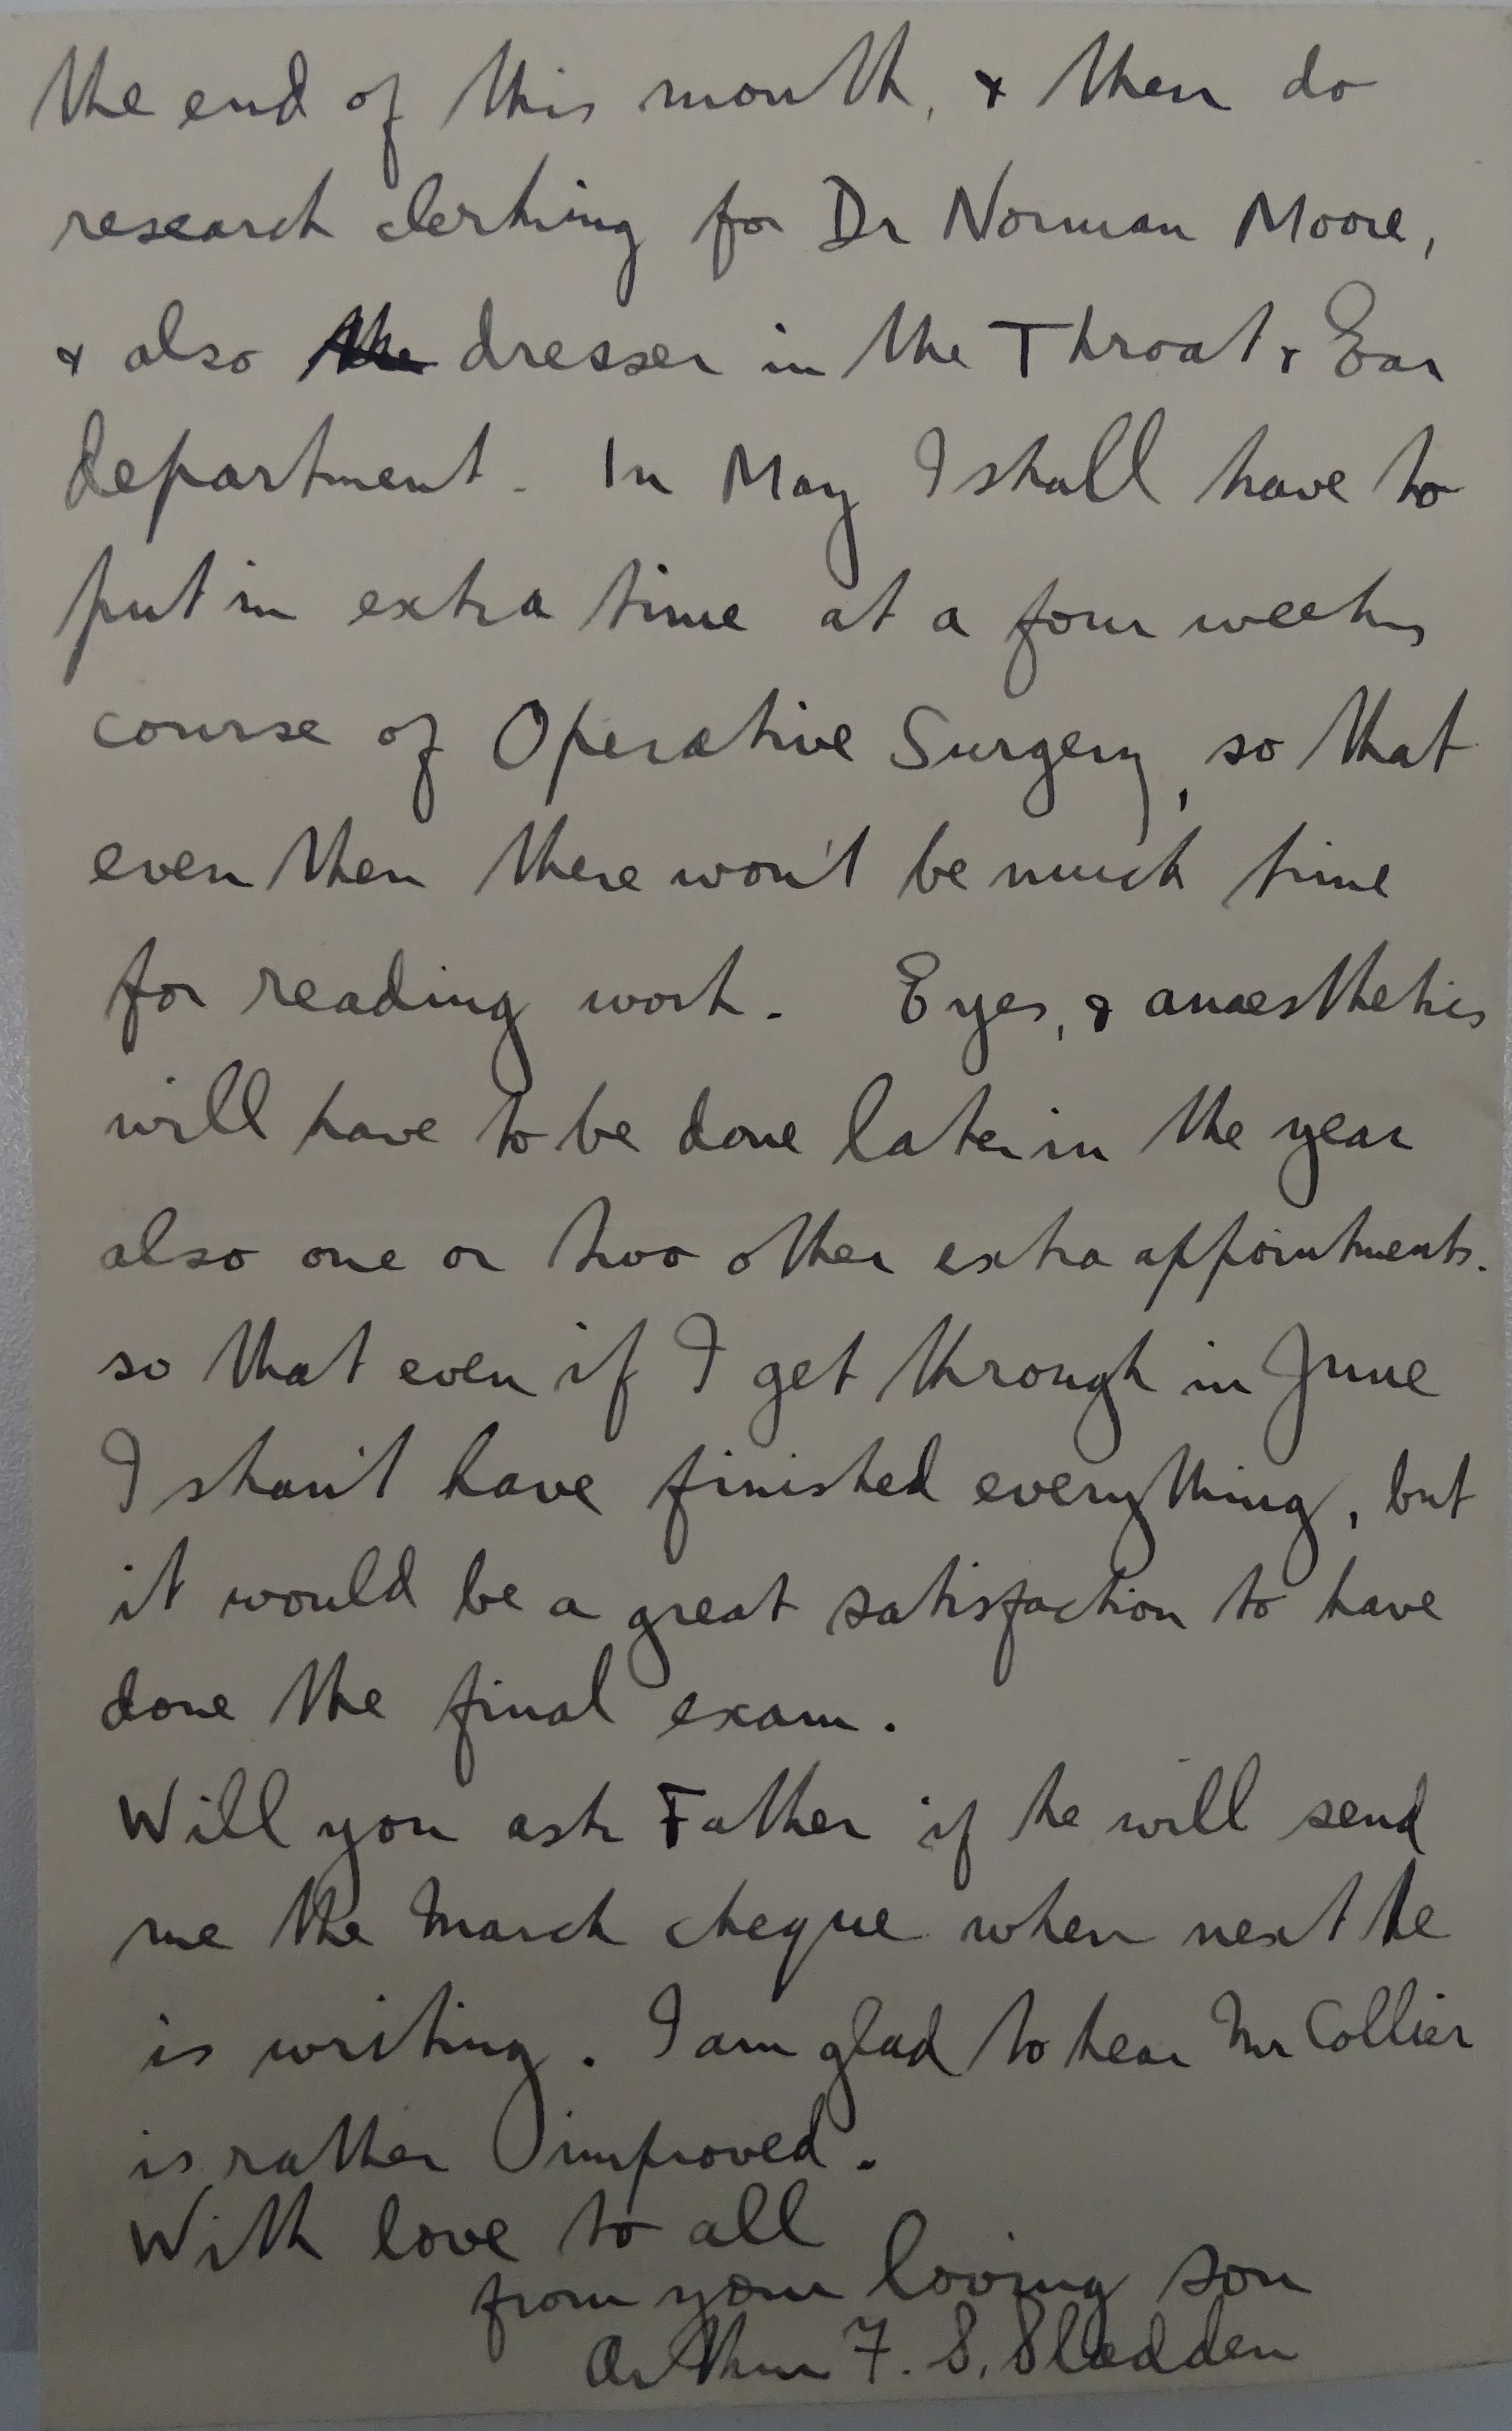 the end of this month, & then do
research clerking for Dr Norman Moore,
& also the dresser in the Throat & Ear
department. In May I shall have to
put in extra time at a four weeks
course of Operative Surgery, so that
even then there won't be much time
for reading work. Eyes, & anaesthetics
will have to be done later in the year
also one or two other extra appointments.
so that even if I get through in June
I shan't have finished everything, but
it would be a great satisfaction to have
done the final exam.
Will you ask Father if he will send
me the March cheque when next he
is writing. I am glad to hear Mr Collier
is rather improved.
With love to all
from your loving son
Arthur F. S. Sladden